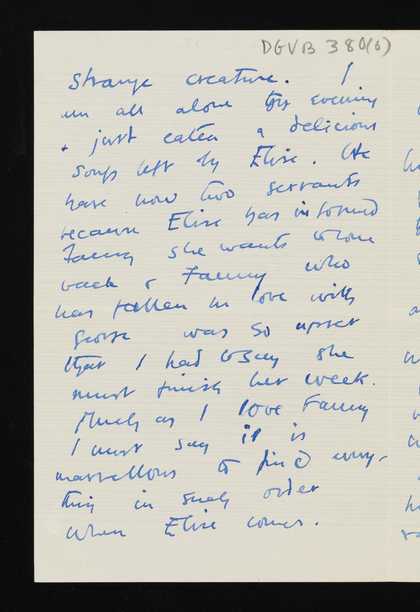 DGVB 380(6)
strange creature. I
am all alone this evening
+ just eaten a delicious
soup left by Elise. We
have now two servants
because Elise has informed
Fanny she wants to come
back & Fanny who
has fallen in love with
George was so upset
that I had to say she
must finish her week.
Much as I love Fanny
I must say it is
marvellous to find every-
thing in such order
when Elise comes.